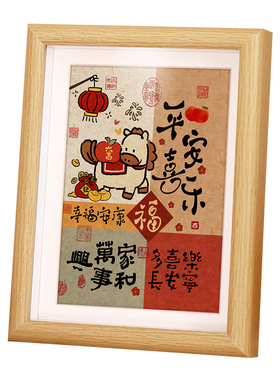 平安喜乐
大吉
幸福安康
福
家和
萬事
興
樂寧
喜安
多長